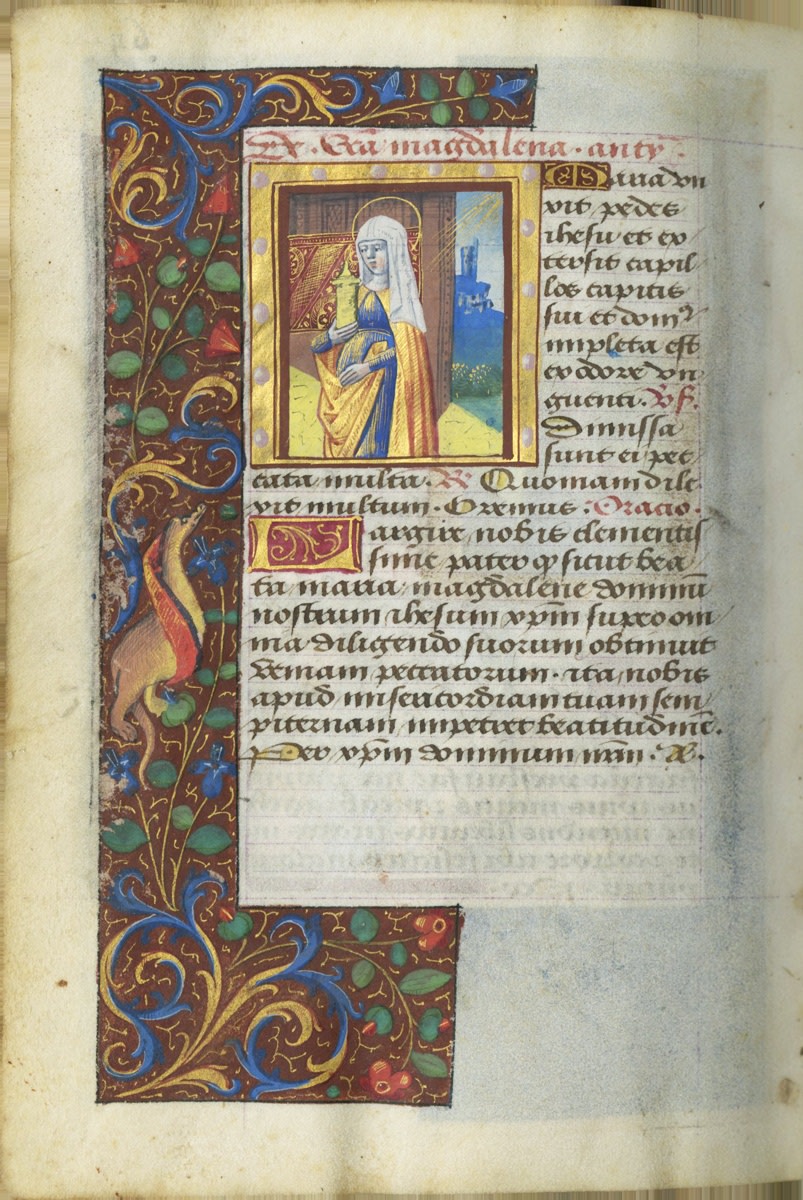 De . bea magdalena . anty
Maria vn
vit pedes
ihesu et ex
tersit capil
los capitis
sui et domꝰ
impleta est
ex odore vn
guenti . Vs.
Dimissa
sunt ei pec
cata multa . R Quoniam dile
vit multum . Oremus : Oracio .
Largire nobis clementis
sime pater qͥ sicut bea
ta maria magdalene dominū
nostrum ihesum xp̄m super om
nia diligendo suorum obtinuit
veniam peccatorum . ita nobis
apud misericordiam tuam sem
piternam impetret beatitudinē .
Per xp̄m dominum nr̄m . A .